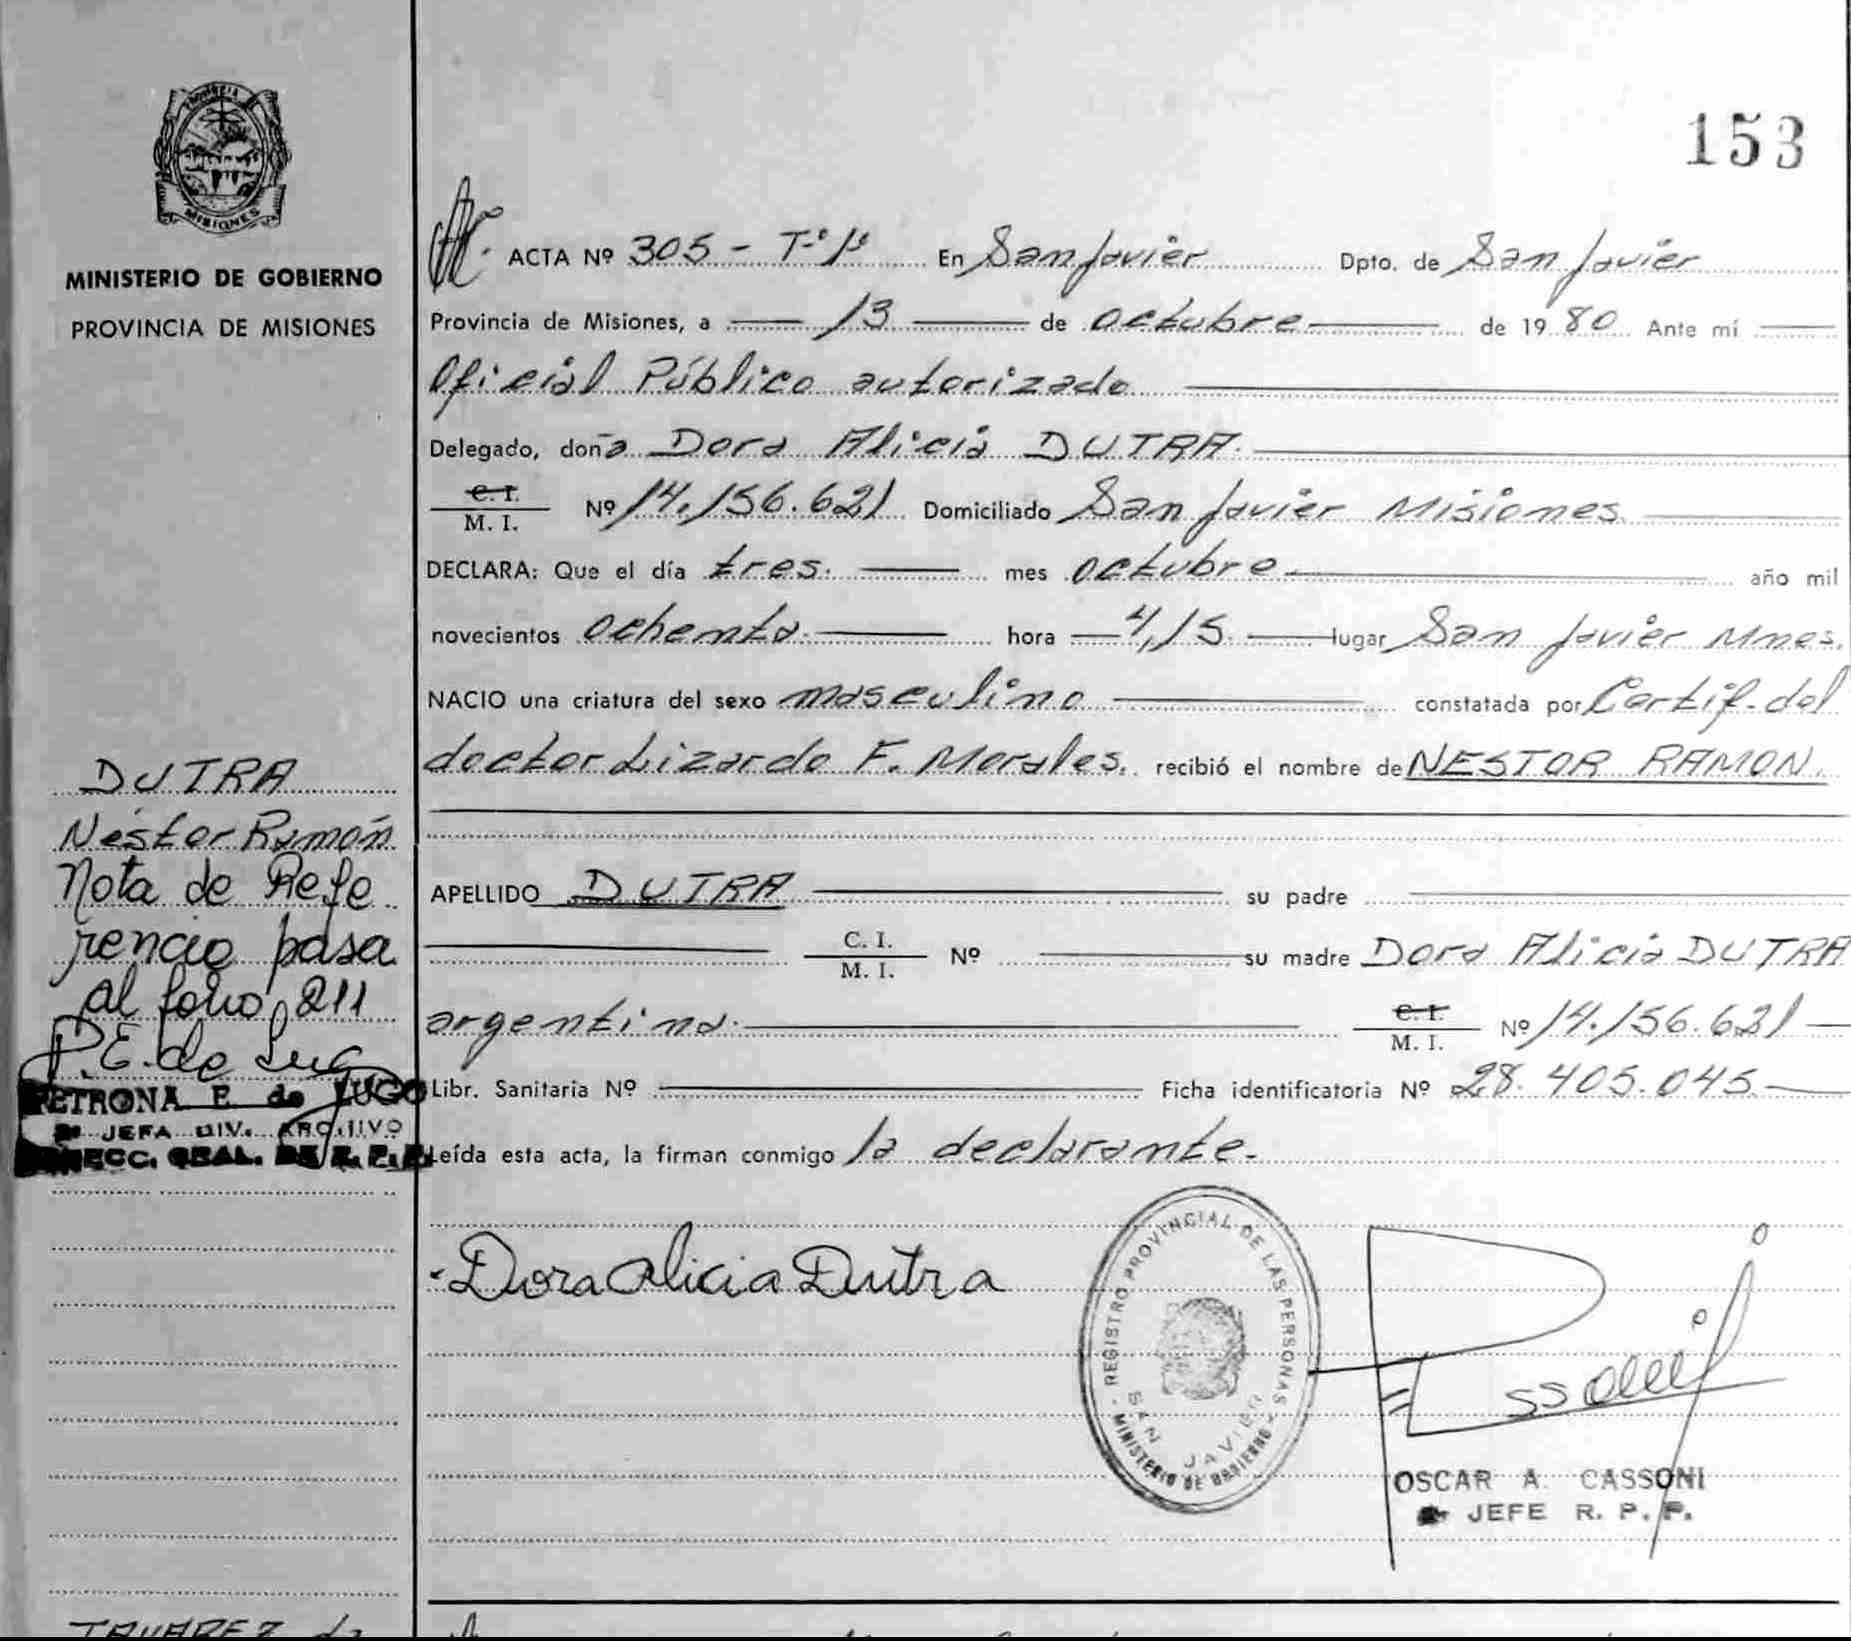 153
PROVINCIA DE
MISIONES
MINISTERIO DE GOBIERNO
PROVINCIA DE MISIONES
ACTA Nº 305 - Tº 1º En San Javier Dpto. de San Javier
Provincia de Misiones, a 13 de octubre de 1980 Ante mí
Oficial Público autorizado
Delegado, doña Dora Alicia DUTRA.
C. I.
M. I. Nº 14.156.621 Domiciliado San Javier Misiones
DECLARA: Que el día tres. mes octubre año mil
novecientos ochenta. hora 4,15. lugar San Javier Mnes.
NACIO una criatura del sexo masculino constatada por Certif. del
doctor Lizardo F. Morales. recibió el nombre de NESTOR RAMON.
APELLIDO DUTRA su padre
C. I.
M. I. Nº su madre Dora Alicia DUTRA
argentina. C. I.
M. I. Nº 14.156.621
Libr. Sanitaria Nº Ficha identificatoria Nº 28.405.045.
Leída esta acta, la firman conmigo la declarante.
Dora Alicia Dutra
REGISTRO PROVINCIAL DE LAS PERSONAS
SAN JAVIER
MINISTERIO DE GOBIERNO
OSCAR A. CASSONI
JEFE R. P. P.
DUTRA
Néstor Ramón
Nota de Refe
rencia pasa
al folio 211
P. E. de Lugo
PETRONA E. de LUGO
JEFA DIV. ARCHIVO
DIRECC. GRAL. DE R. P. P.
TAVAREZ da